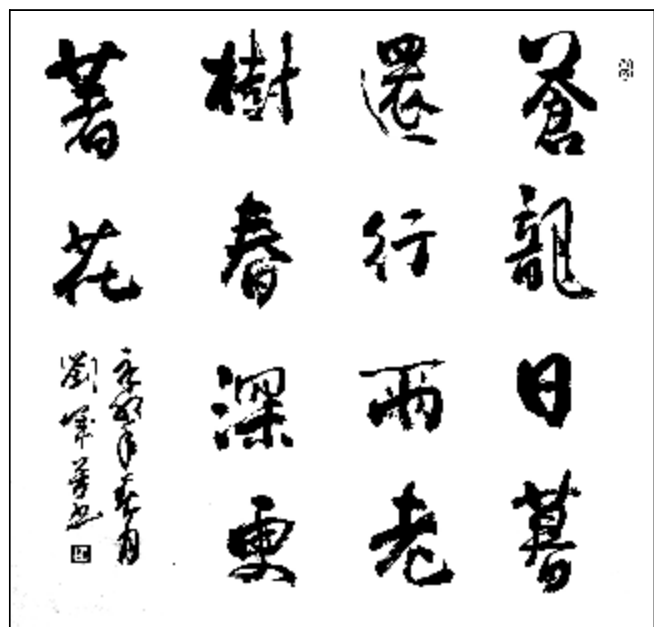 蒼龍日暮
還行雨老
樹春深更
著花
年春月
劉